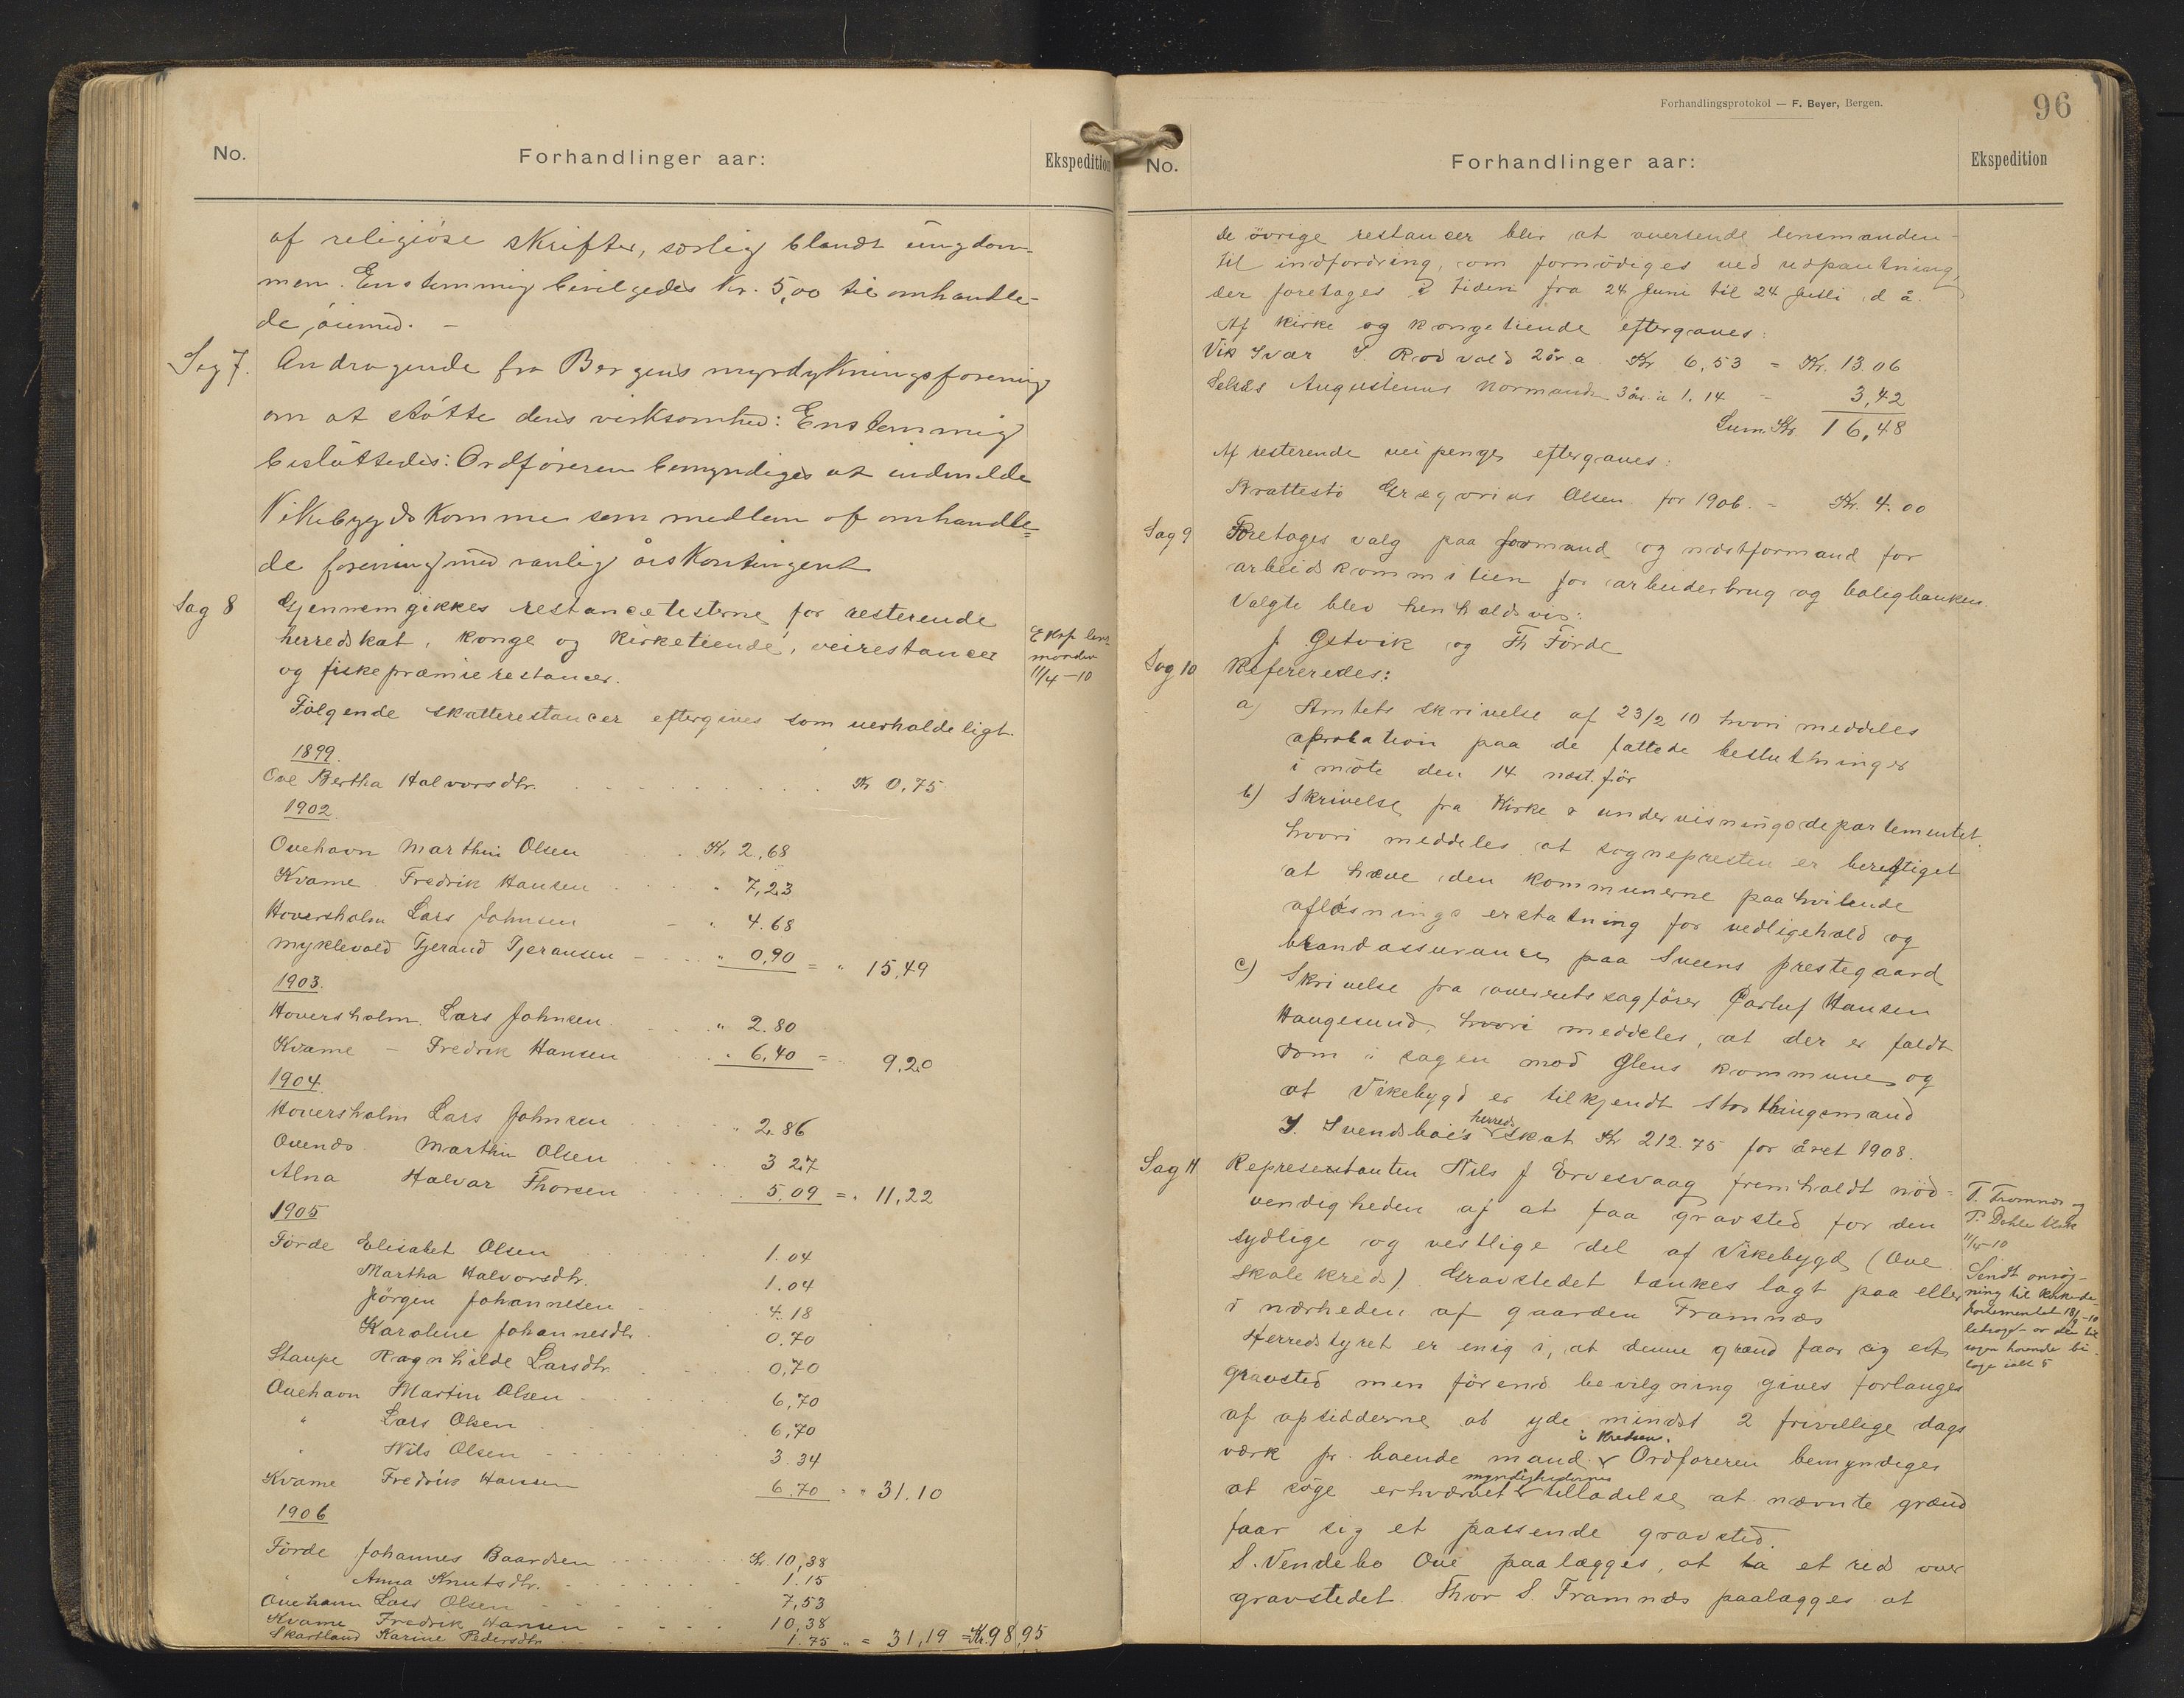 No.
Forhandlinger aar:
Ekspedition
af religiöse skrifter, særlig blandt ungdom-
men. Enstemmig bevilgedes Kr. 5,00 til omhandle-
de öiemed. –
Sag 7.
Andragende fra Bergens myrdyrkningsforening
om at stötte deres virksomhed: Enstemmig
beslüttedes: Ordföreren bemyndiges at indmelde
Vikebygds Komme som medlem af omhandle=
de forening med vanlig årskontingent
Sag 8
Gjennemgikkes restancelisterne for resterende
herredskat, konge og kirketiende, veirestancer
og fiskepræmierestancer.
Eksp lens-
manden
11/4 – 10
Fölgende skatterestancer eftergives som uerholdeligt.
1899.
Ove Bertha Halvorsdtr. Kr 0,75
1902.
Ovehavn Marthin Olsen Kr 2,68
Kvame Fredrik Hansen " 7,23
Hoversholm Lars Johnsen " 4.68
Myklevold Tjerand Tjeransen " 0,90 = " 15,49
1903.
Hoversholm. Lars Johnsen " 2.80
Kvame – Fredrik Hansen " 6,40 = " 9,20
1904.
Hoversholm Lars Johnsen " 2.86
Ovenes Marthin Olsen 3 27
Alna Halvar Thorsen 5.09 = " 11,22
1905
Förde Elisabet Olsen 1.04
Martha Halvorsdtr. 1.04
Jörgen Johannesen 4.18
Karoline Johannesdtr 0.70
Staupe Ragnhilde Larsdtr 0,70
Ovehavn Martin Olsen 6,70
" Lars Olsen 6,70
" Nils Olsen 3.34
Kvame Fredrik Hansen 6.70 = " 31.10
1906
Förde Johannes Baardsen Kr 10,38
" Anna Knutsdtr. 1.15
Ovehavn Lars Olsen 7,53
Kvame Fredrik Hansen 10,38
Skartland Karine Pedersdtr 1.75 " = 31,19 = Kr. 98,95
Forhandlingsprotokol — F. Beyer, Bergen.
96
No.
Forhandlinger aar:
Ekspedition
De övrige restancer blev at oversende lensmanden
til indfordring, om fornödiges ved udpantning
der foretages i tiden fra 24 Juni til 24 Julli d å.
Af kirke og kongetiende eftergaves:
Vik Ivar I. Rödvold 2 år a Kr 6,53 = Kr. 13.06
Selsås Augustinus Normand 3 år à 1.14 – 3,42
Sum Kr 16,48
Af resterende veipenge eftergaves:
Brattestö Gregorius Olsen for 1906. – Kr. 4.00
Sag 9
Foretages valg paa formand og næstformand for
arbeidskommitien for arbeiderbrug og boligbanken.
Valgte blev henholdsvis:
J. Östvik og Th Förde
Sag 10
Refereredes:
a) Amtets skrivelse af 23/2 10 hvori meddeles
aprobation paa de fattede beslutninger
i möte den 14 næst. för
b) Skrivelse fra Kirke & undervisningsdepartementet,
hvori meddeles at sognepresten er berettiget
at hæve den kommunerne paahvilende
aflösningserstatning for vedligehold og
brandassurance paa Sveens prestegaard
c) Skrivelse fra overretssagförer Carluf Hansen
Haugesund, hvori meddeles, at der er faldt
dom i sagen mod Ölens kommune og
at Vikebygd er tilkjendt Storthingsmand
I. Svendsböe's herredsskat Kr 212.75 for året 1908.
Sag 11
Representanten Nils J Ervesvaag fremholdt nöd-
vendigheden af at faa gravsted for den
sydlige og vestlige del af Vikebygd (Ove
skolekreds). Gravstedet tænkes lagt paa eller
i nærheden af gaarden Framnæs
Herredstyret er enig i, at denne grænd faar sig et
gravsted men förend bevilgning gives forlanges
af opsidderne at yde mindst 2 frivillige dags
værk pr. boende mand i Kredsen. Ordföreren bemyndiges
at söge erhvervet myndighedernes tilladelse at nævnte grænd
faar sig et passende gravsted.
S. Vendebo Ove paalægges, at ta et rids over
gravstedet. Thor S. Framnæs paalægges at
T. Framnæs og
11/4–10
Sendt ansög-
ning til Kirkede-
partementet 18/